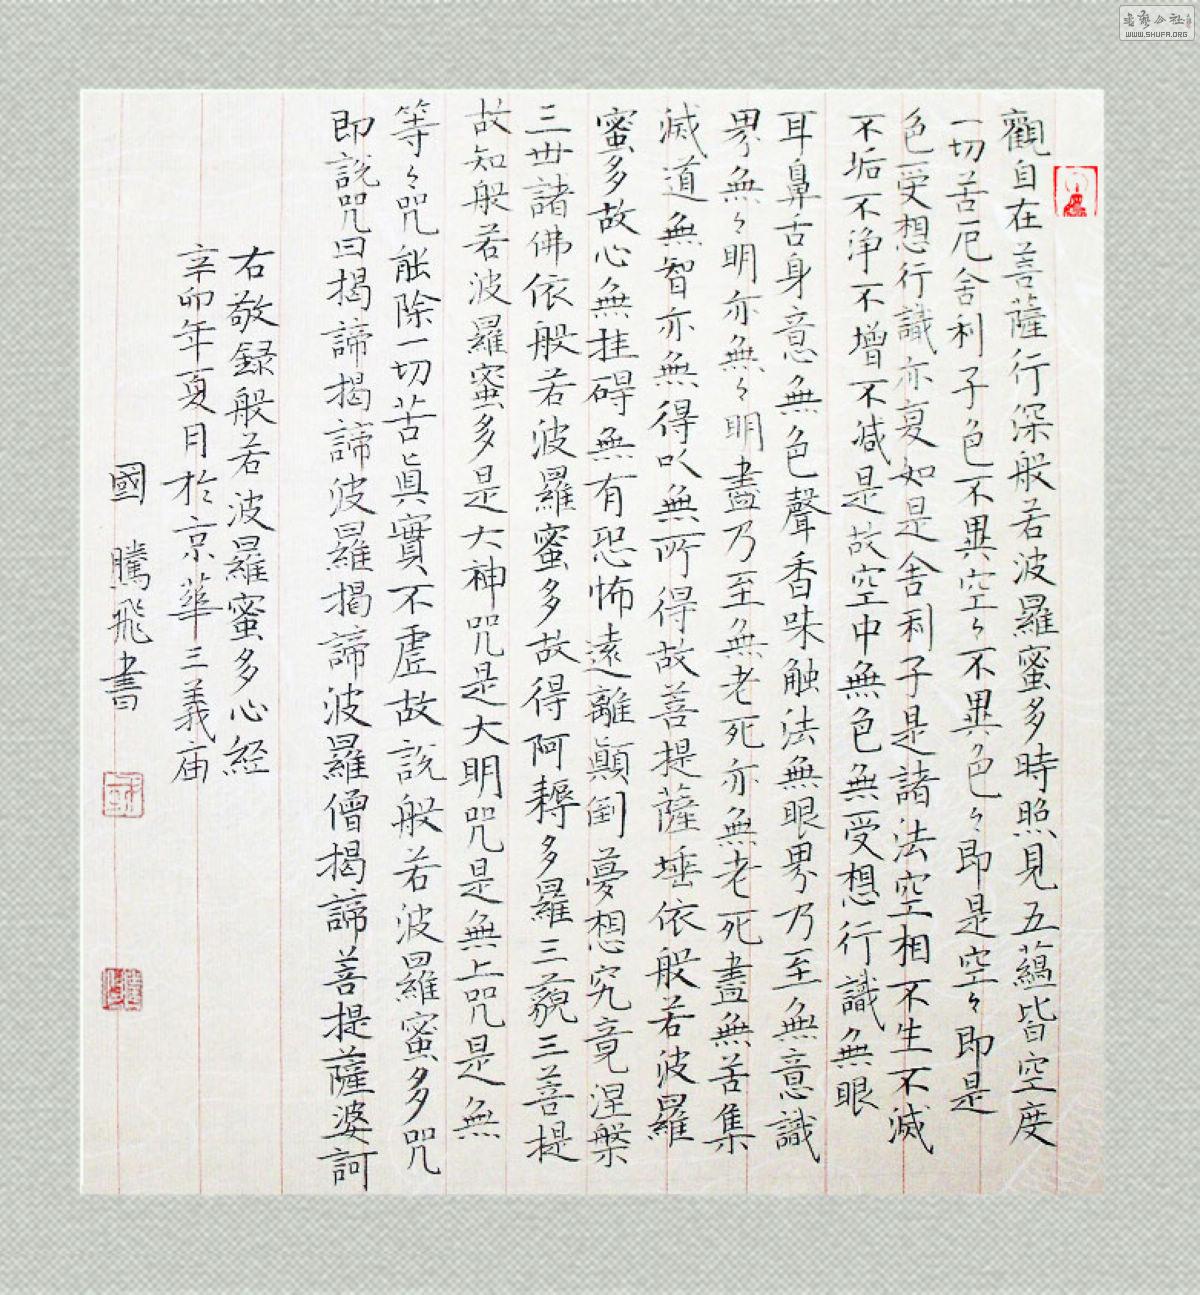 觀自在菩薩行深般若波羅蜜多時照見五蘊皆空度
一切苦厄舍利子色不異空々不異色々即是空々即是
色受想行識亦复如是舍利子是諸法空相不生不滅
不垢不淨不增不減是故空中無色無受想行識無眼
耳鼻舌身意無色聲香味触法無眼界乃至無意識
界無々明亦無々明盡乃至無老死亦無老死盡無苦集
滅道無智亦無得以無所得故菩提薩埵依般若波羅
蜜多故心無挂碍無有恐怖遠離顛倒夢想究竟涅槃
三世諸佛依般若波羅蜜多故得阿耨多羅三藐三菩提
故知般若波羅蜜多是大神咒是大明咒是無上咒是無
等々咒能除一切苦真實不虛故說般若波羅蜜多咒
即說咒曰揭諦揭諦波羅揭諦波羅僧揭諦菩提薩婆訶
右敬録般若波羅蜜多心経
辛卯年夏月於京華三義庙
國騰飛書
WWW.SHUFA.ORG